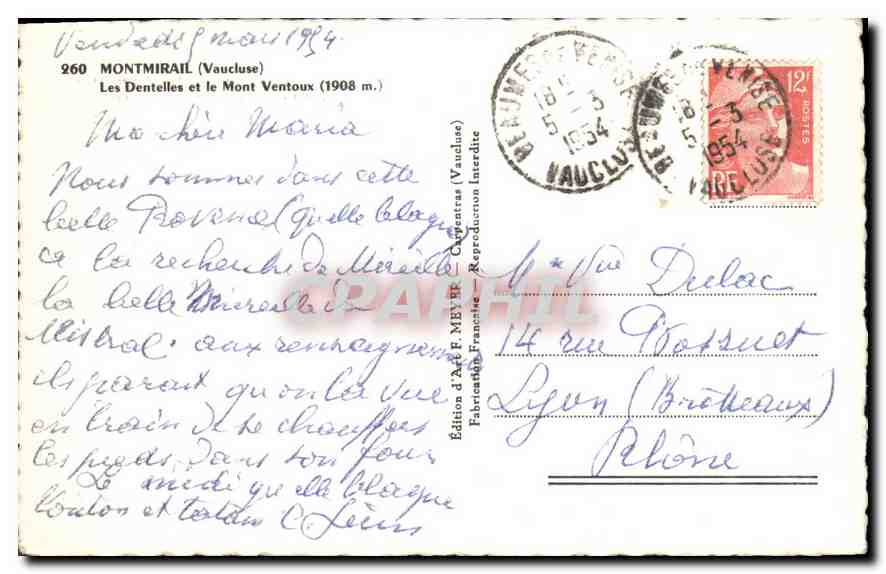 Vendredi 5 mars 1954
260 MONTMIRAIL (Vaucluse)
Les Dentelles et le Mont Ventoux (1908 m.)
Ma chère Maria
Nous sommes dans cette
belle Provence (quelle blague)
a la recherche de Mireille
la belle Mireille de
Mistral. aux renseignements
il parait qu'on la vue
en train de se chauffer
les pieds dans son four
Le midi quelle blague
Tonton et tatan
BEAUMES DE VENISE
18 H
5 - 3
1954
VAUCLUSE
BEAUMES DE VENISE
18 H
5 - 3
1954
VAUCLUSE
12F
POSTES
RF
Édition d'Art F. MEYER — Carpentras (Vaucluse)
Fabrication Française — Reproduction Interdite
CPAPHIL
Mme Vve Dulac
14 rue Bossuet
Lyon (Brotteaux)
Rhône